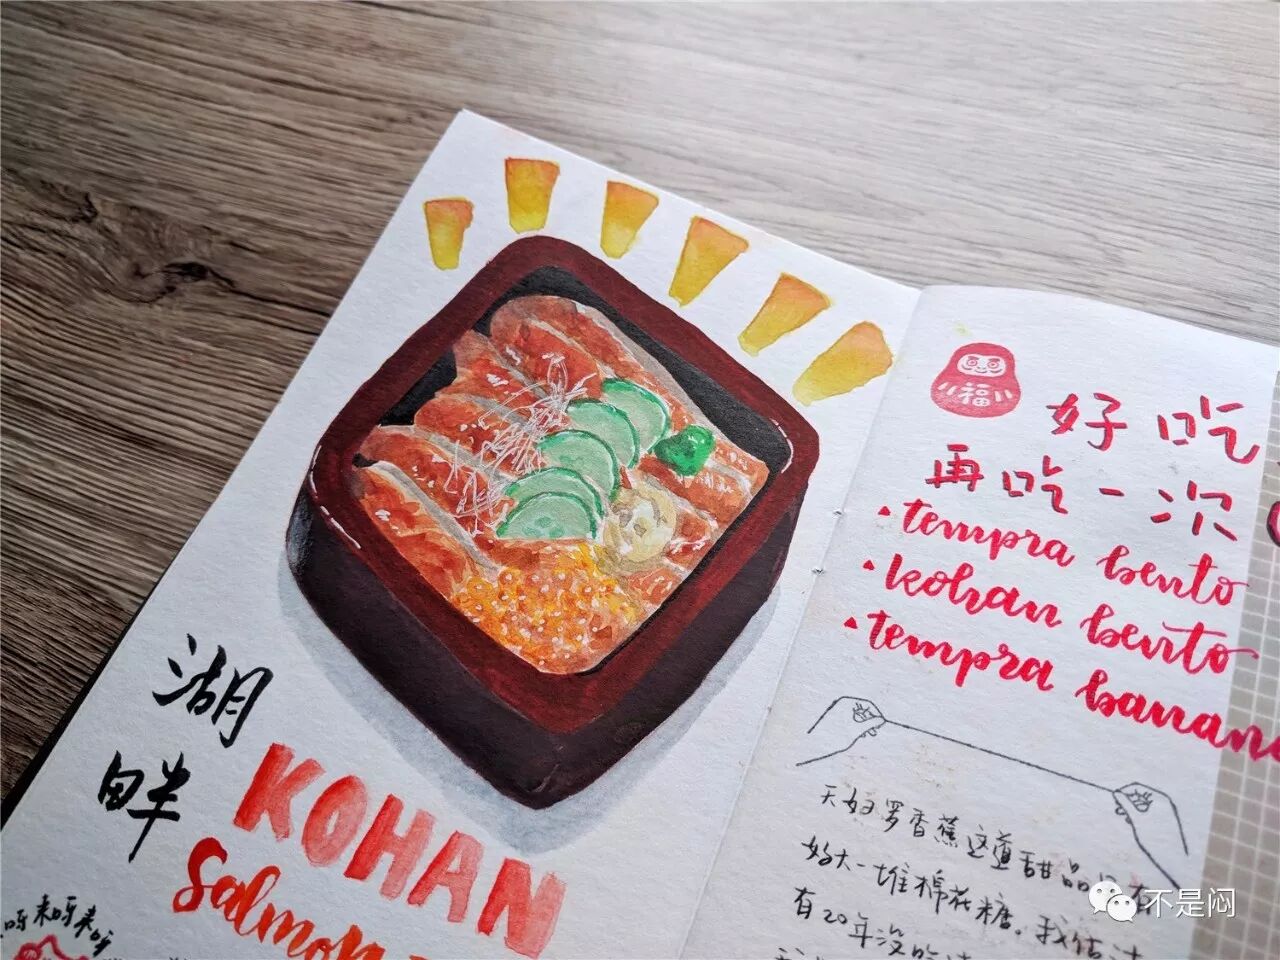 湖畔
KOHAN
Salmon
呀来呀来呀
福
好吃
再吃一次
tempra bento
kohan bento
tempra banana
天妇罗香蕉这道甜品
好大一堆棉花糖，我估计
有20年没吃
不是闷